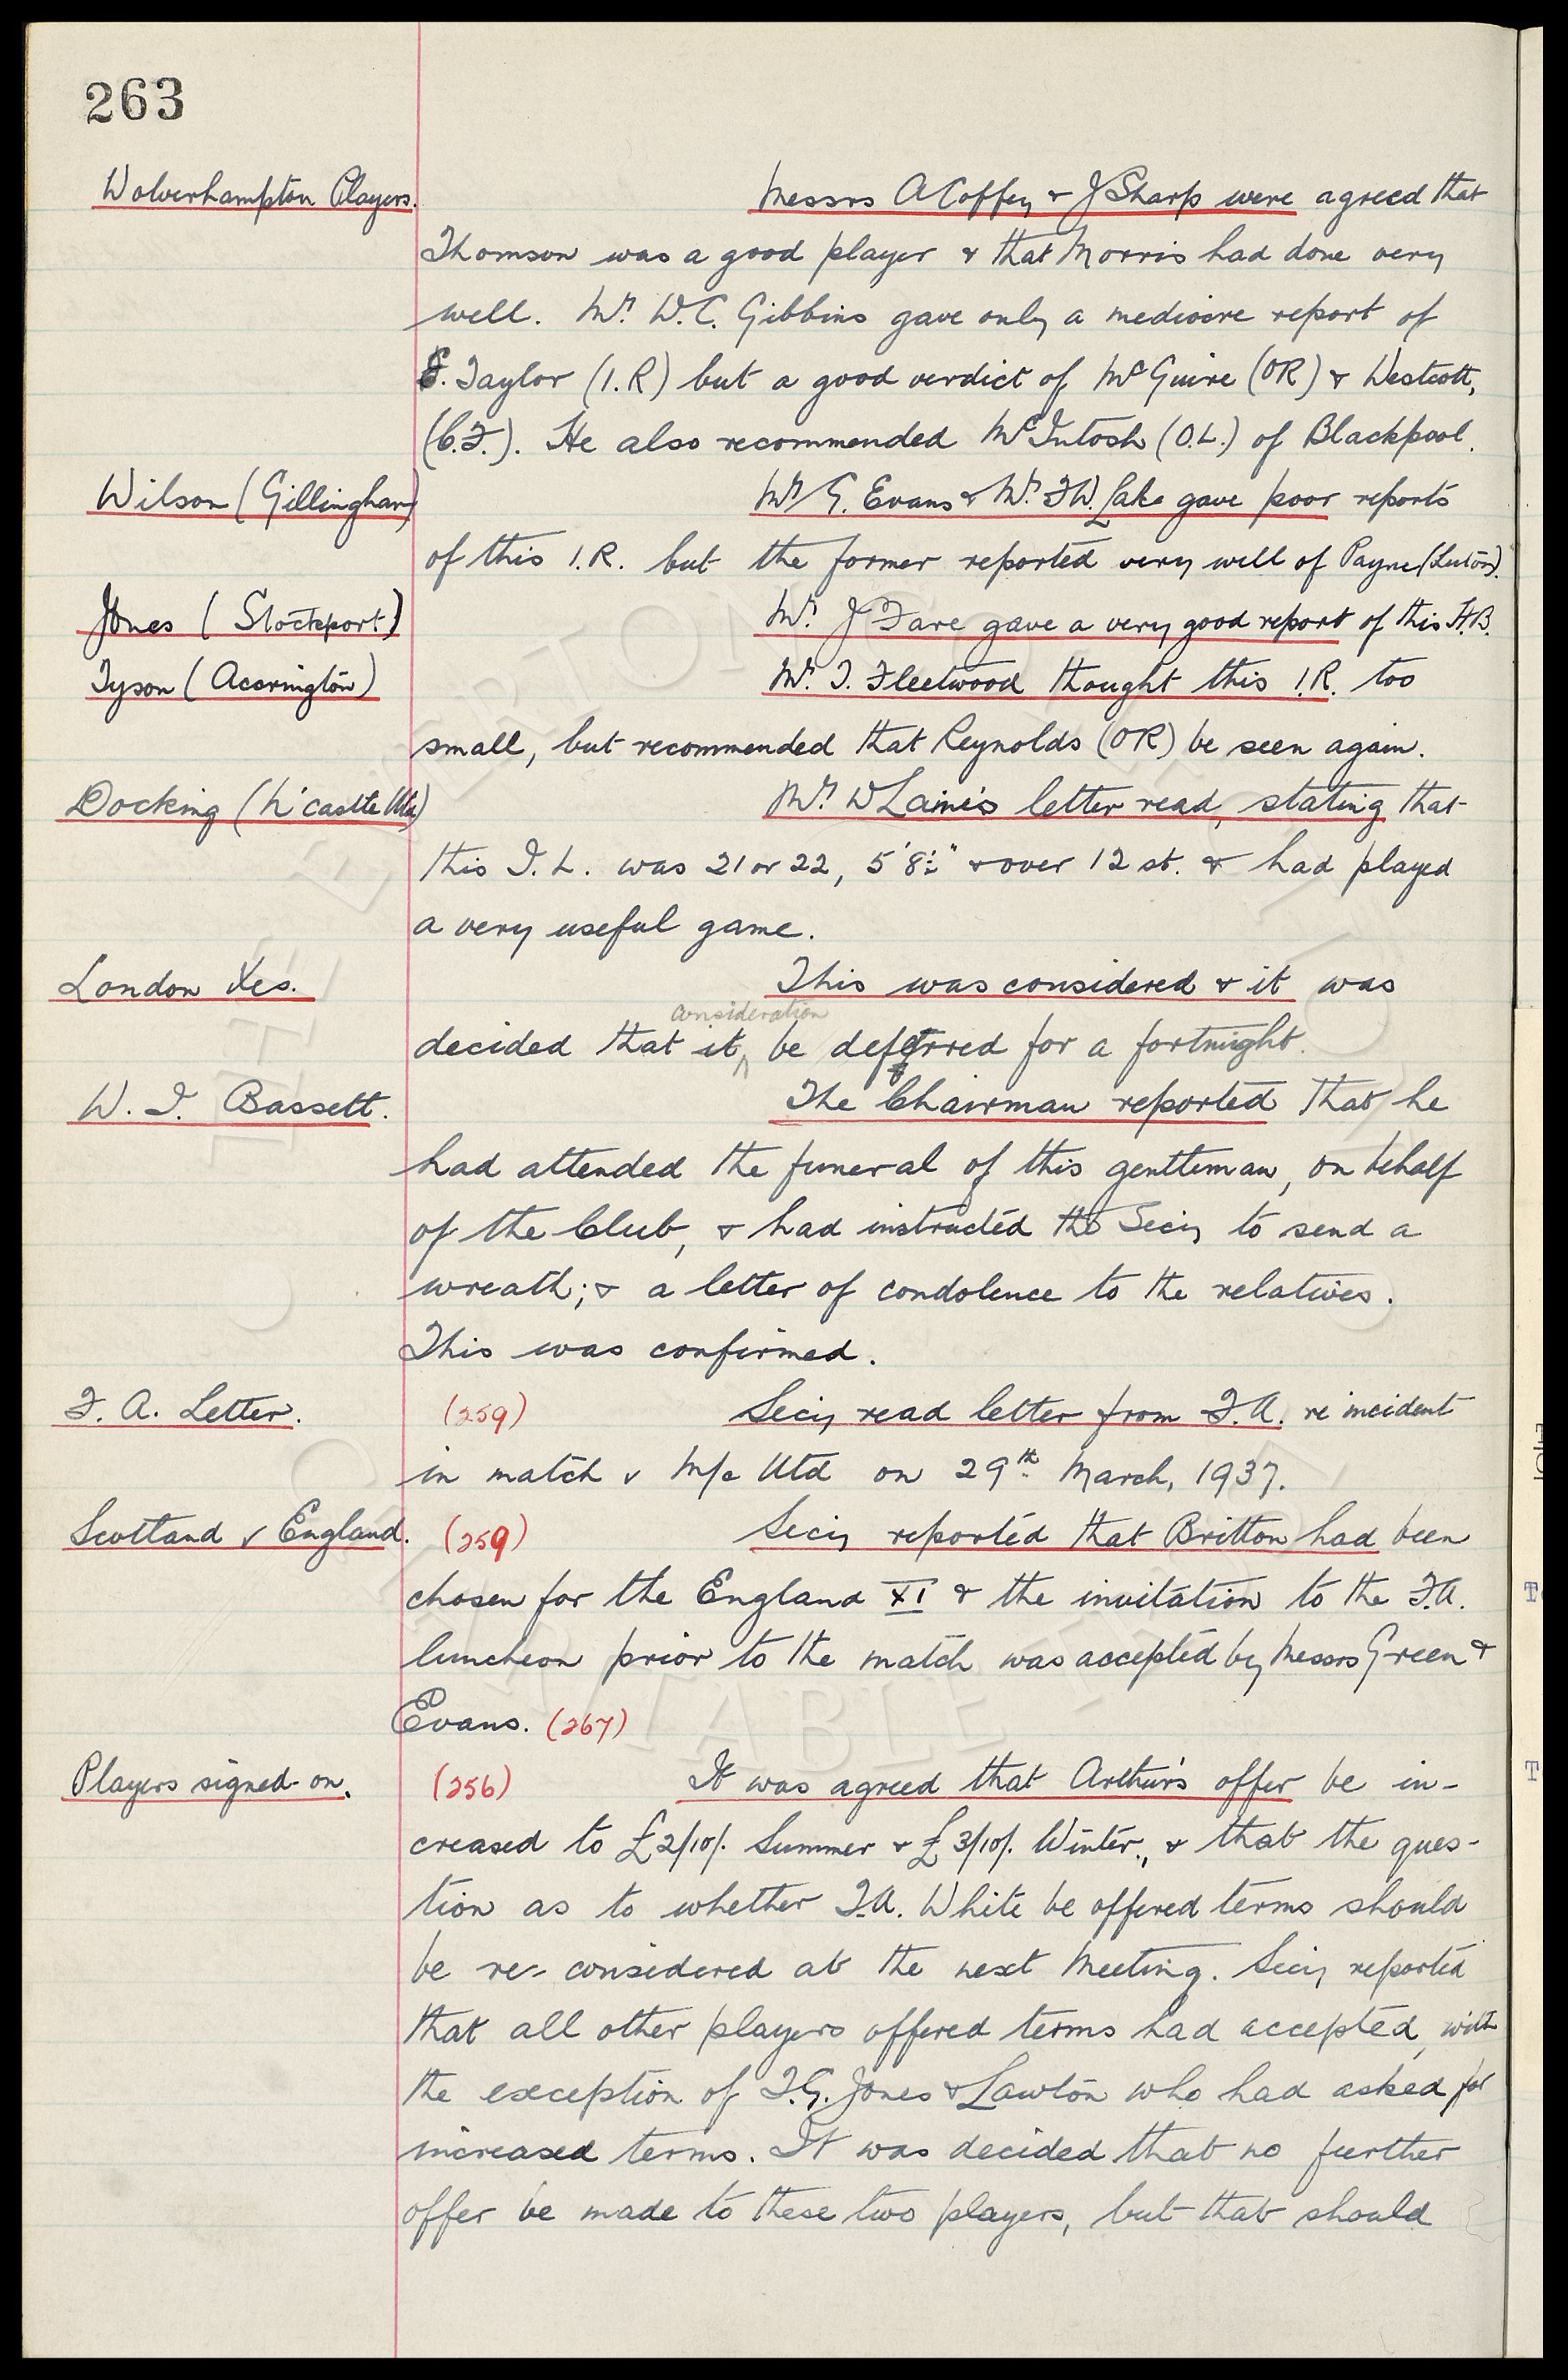 263
Wolverhampton Players. Messrs A Coffey & J Sharp were agreed that
Thomson was a good player & that Morris had done very
well. Mr. W.C. Gibbins gave only a mediocre report of
Taylor (I.R) but a good verdict of McGuire (OR) & Westcott,
(C.F.). He also recommended McIntosh (O.L.) of Blackpool.
Wilson (Gillingham) Mr G. Evans & Mr. F.W. Lake gave poor reports
of this I.R. but the former reported very well of Payne (Luton).
Jones (Stockport) Mr. J Fare gave a very good report of this H.B.
Tyson (Accrington) Mr. T. Fleetwood thought this I.R. too
small, but recommended that Reynolds (OR) be seen again.
Docking (N'castle Utd) Mr. W Laine's letter read, stating that
this I.L. was 21 or 22, 5'8½" & over 12 st. & had played
a very useful game.
London Xes. This was considered & it was
consideration
decided that it be deferred for a fortnight.
W. I. Bassett. The Chairman reported that he
had attended the funeral of this gentleman, on behalf
of the Club, & had instructed the Secy to send a
wreath; & a letter of condolence to the relatives.
This was confirmed.
F. A. Letter. (259) Secy read letter from F.A. re incident
in match v M/c Utd on 29th March, 1937.
Scotland v England. (259) Secy reported that Britton had been
chosen for the England XI & the invitation to the F.A.
luncheon prior to the match was accepted by Messrs Green &
Evans. (267)
Players signed-on. (256) It was agreed that Arthur's offer be in-
creased to £2/10/. Summer & £3/10/. Winter., & that the ques-
tion as to whether T.A. White be offered terms should
be re-considered at the next Meeting. Secy reported
that all other players offered terms had accepted, with
the exception of T.G. Jones & Lawton who had asked for
increased terms. It was decided that no further
offer be made to these two players, but that should